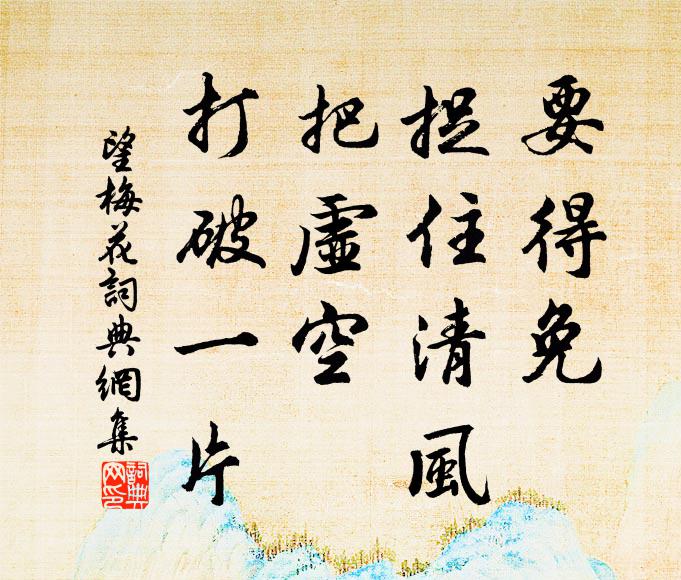 要得免
捉住清風
把虛空
打破一片
望梅花詞典網集
詞典
网印